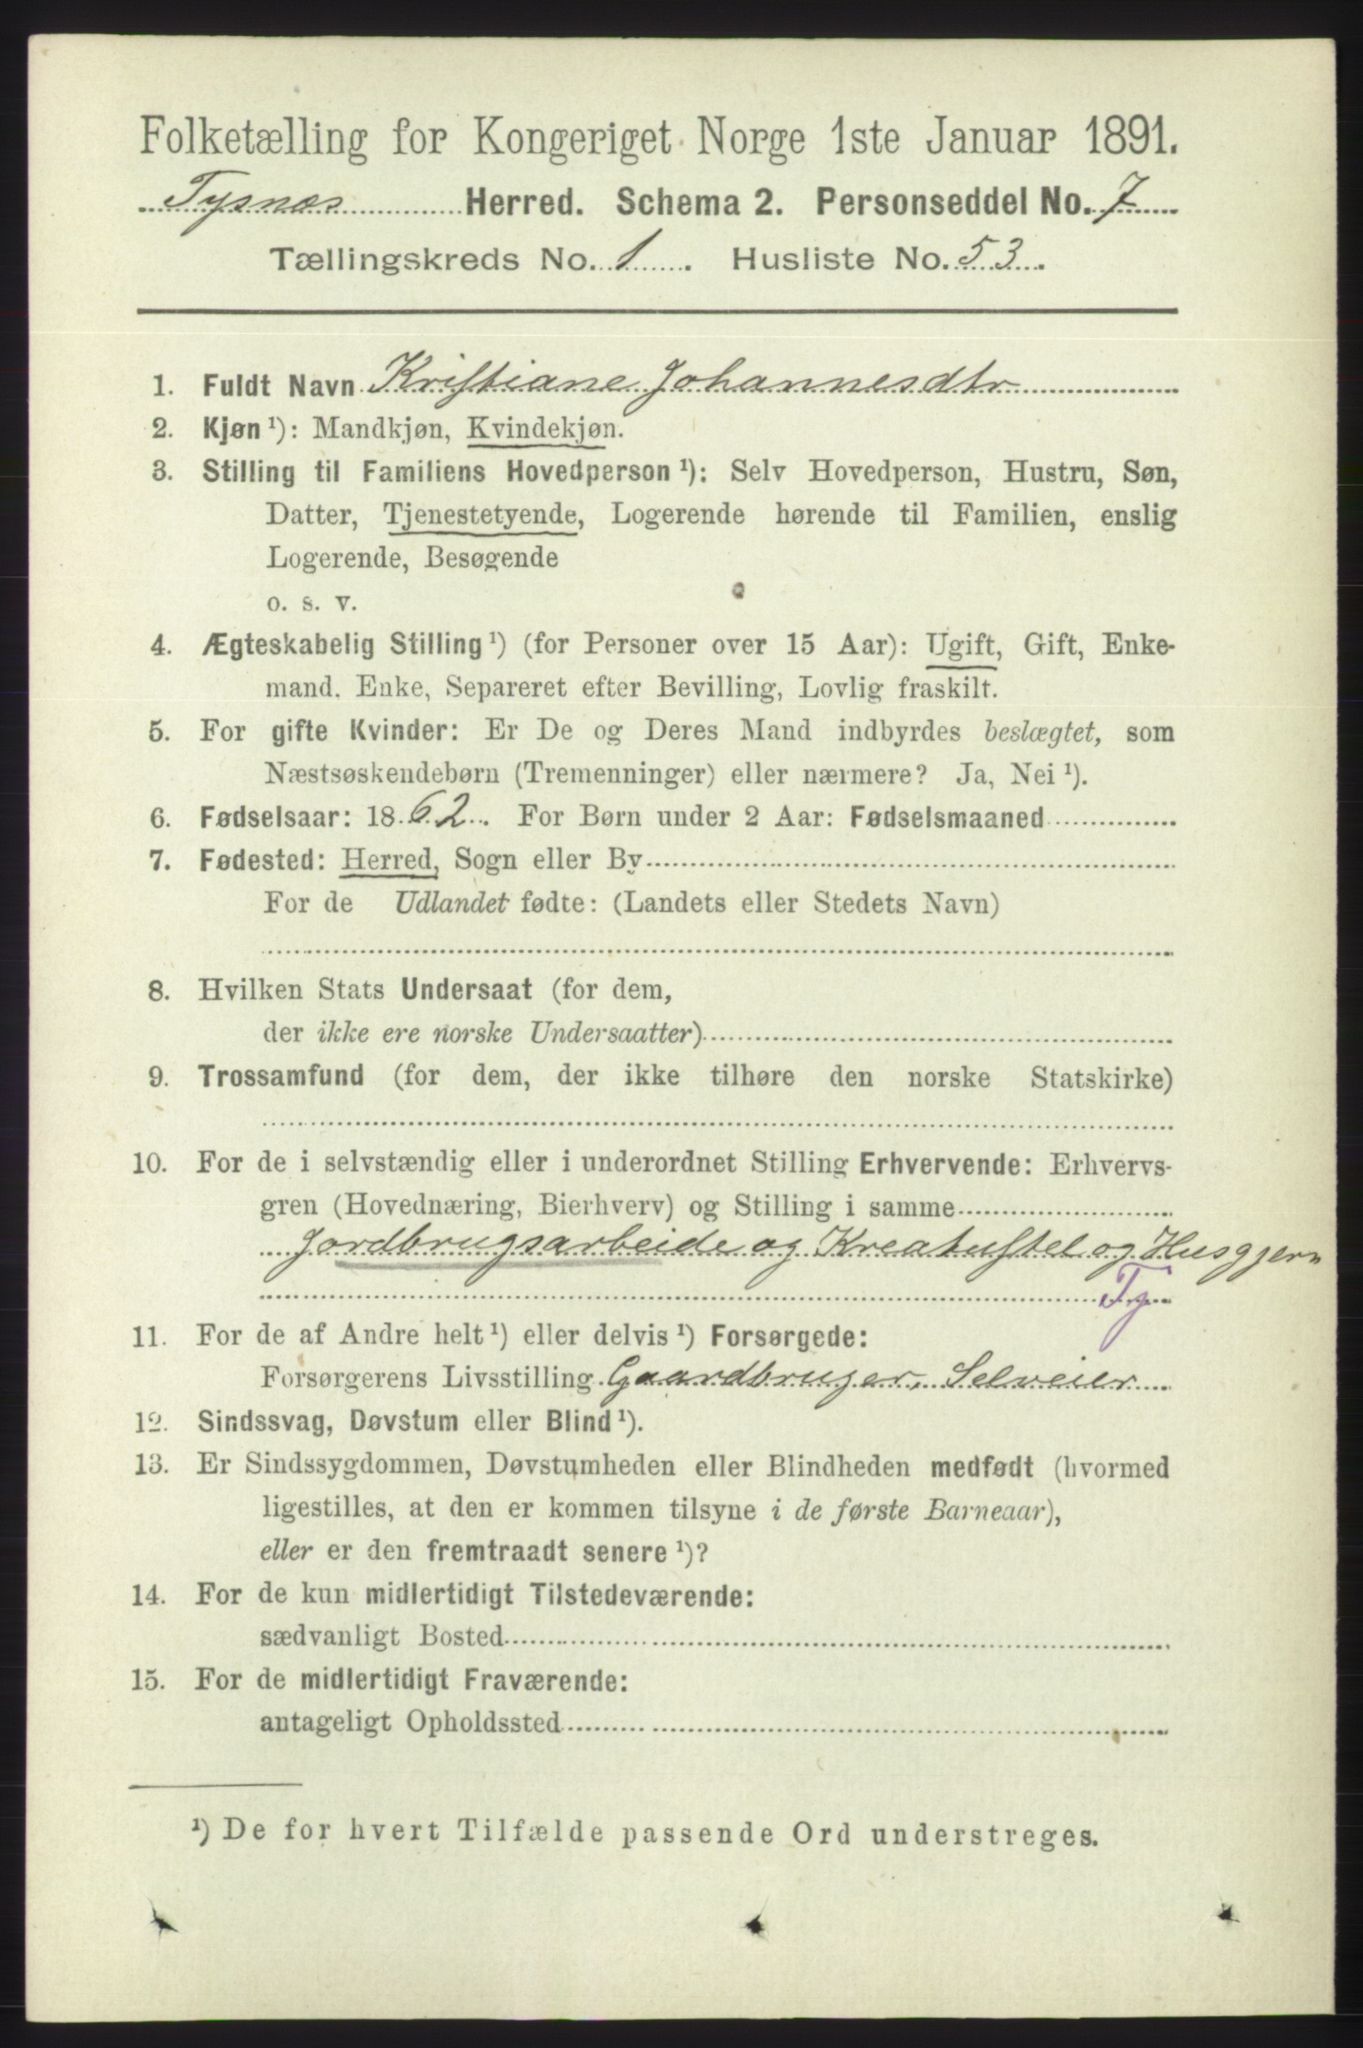 Folketælling for Kongeriget Norge 1ste Januar 1891.
Tysnæs Herred. Schema 2. Personseddel No. 7
Tællingskreds No. 1. Husliste No. 53.
1. Fuldt Navn Kristiane Johannesdtr
2. Kjøn ¹): Mandkjøn, Kvindekjøn.
3. Stilling til Familiens Hovedperson ¹): Selv Hovedperson, Hustru, Søn,
Datter, Tjenestetyende, Logerende hørende til Familien, enslig
Logerende, Besøgende
o. s. v.
4. Ægteskabelig Stilling ¹) (for Personer over 15 Aar): Ugift, Gift, Enke-
mand, Enke, Separeret efter Bevilling, Lovlig fraskilt.
5. For gifte Kvinder: Er De og Deres Mand indbyrdes beslægtet, som
Næstsøskendebørn (Tremenninger) eller nærmere? Ja, Nei ¹).
6. Fødselsaar: 1862. For Børn under 2 Aar: Fødselsmaaned
7. Fødested: Herred, Sogn eller By
For de Udlandet fødte: (Landets eller Stedets Navn)
8. Hvilken Stats Undersaat (for dem,
der ikke ere norske Undersaatter)
9. Trossamfund (for dem, der ikke tilhøre den norske Statskirke)
10. For de i selvstændig eller i underordnet Stilling Erhvervende: Erhvervs-
gren (Hovednæring, Bierhverv) og Stilling i samme
Jordbrugsarbeide og Kreaturstel og Husgjern
Tj
11. For de af Andre helt ¹) eller delvis ¹) Forsørgede:
Forsørgerens Livsstilling Gaardbruger, Selveier
12. Sindssvag, Døvstum eller Blind ¹).
13. Er Sindssygdommen, Døvstumheden eller Blindheden medfødt (hvormed
ligestilles, at den er kommen tilsyne i de første Barneaar),
eller er den fremtraadt senere ¹)?
14. For de kun midlertidigt Tilstedeværende:
sædvanligt Bosted
15. For de midlertidigt Fraværende:
antageligt Opholdssted
¹) De for hvert Tilfælde passende Ord understreges.